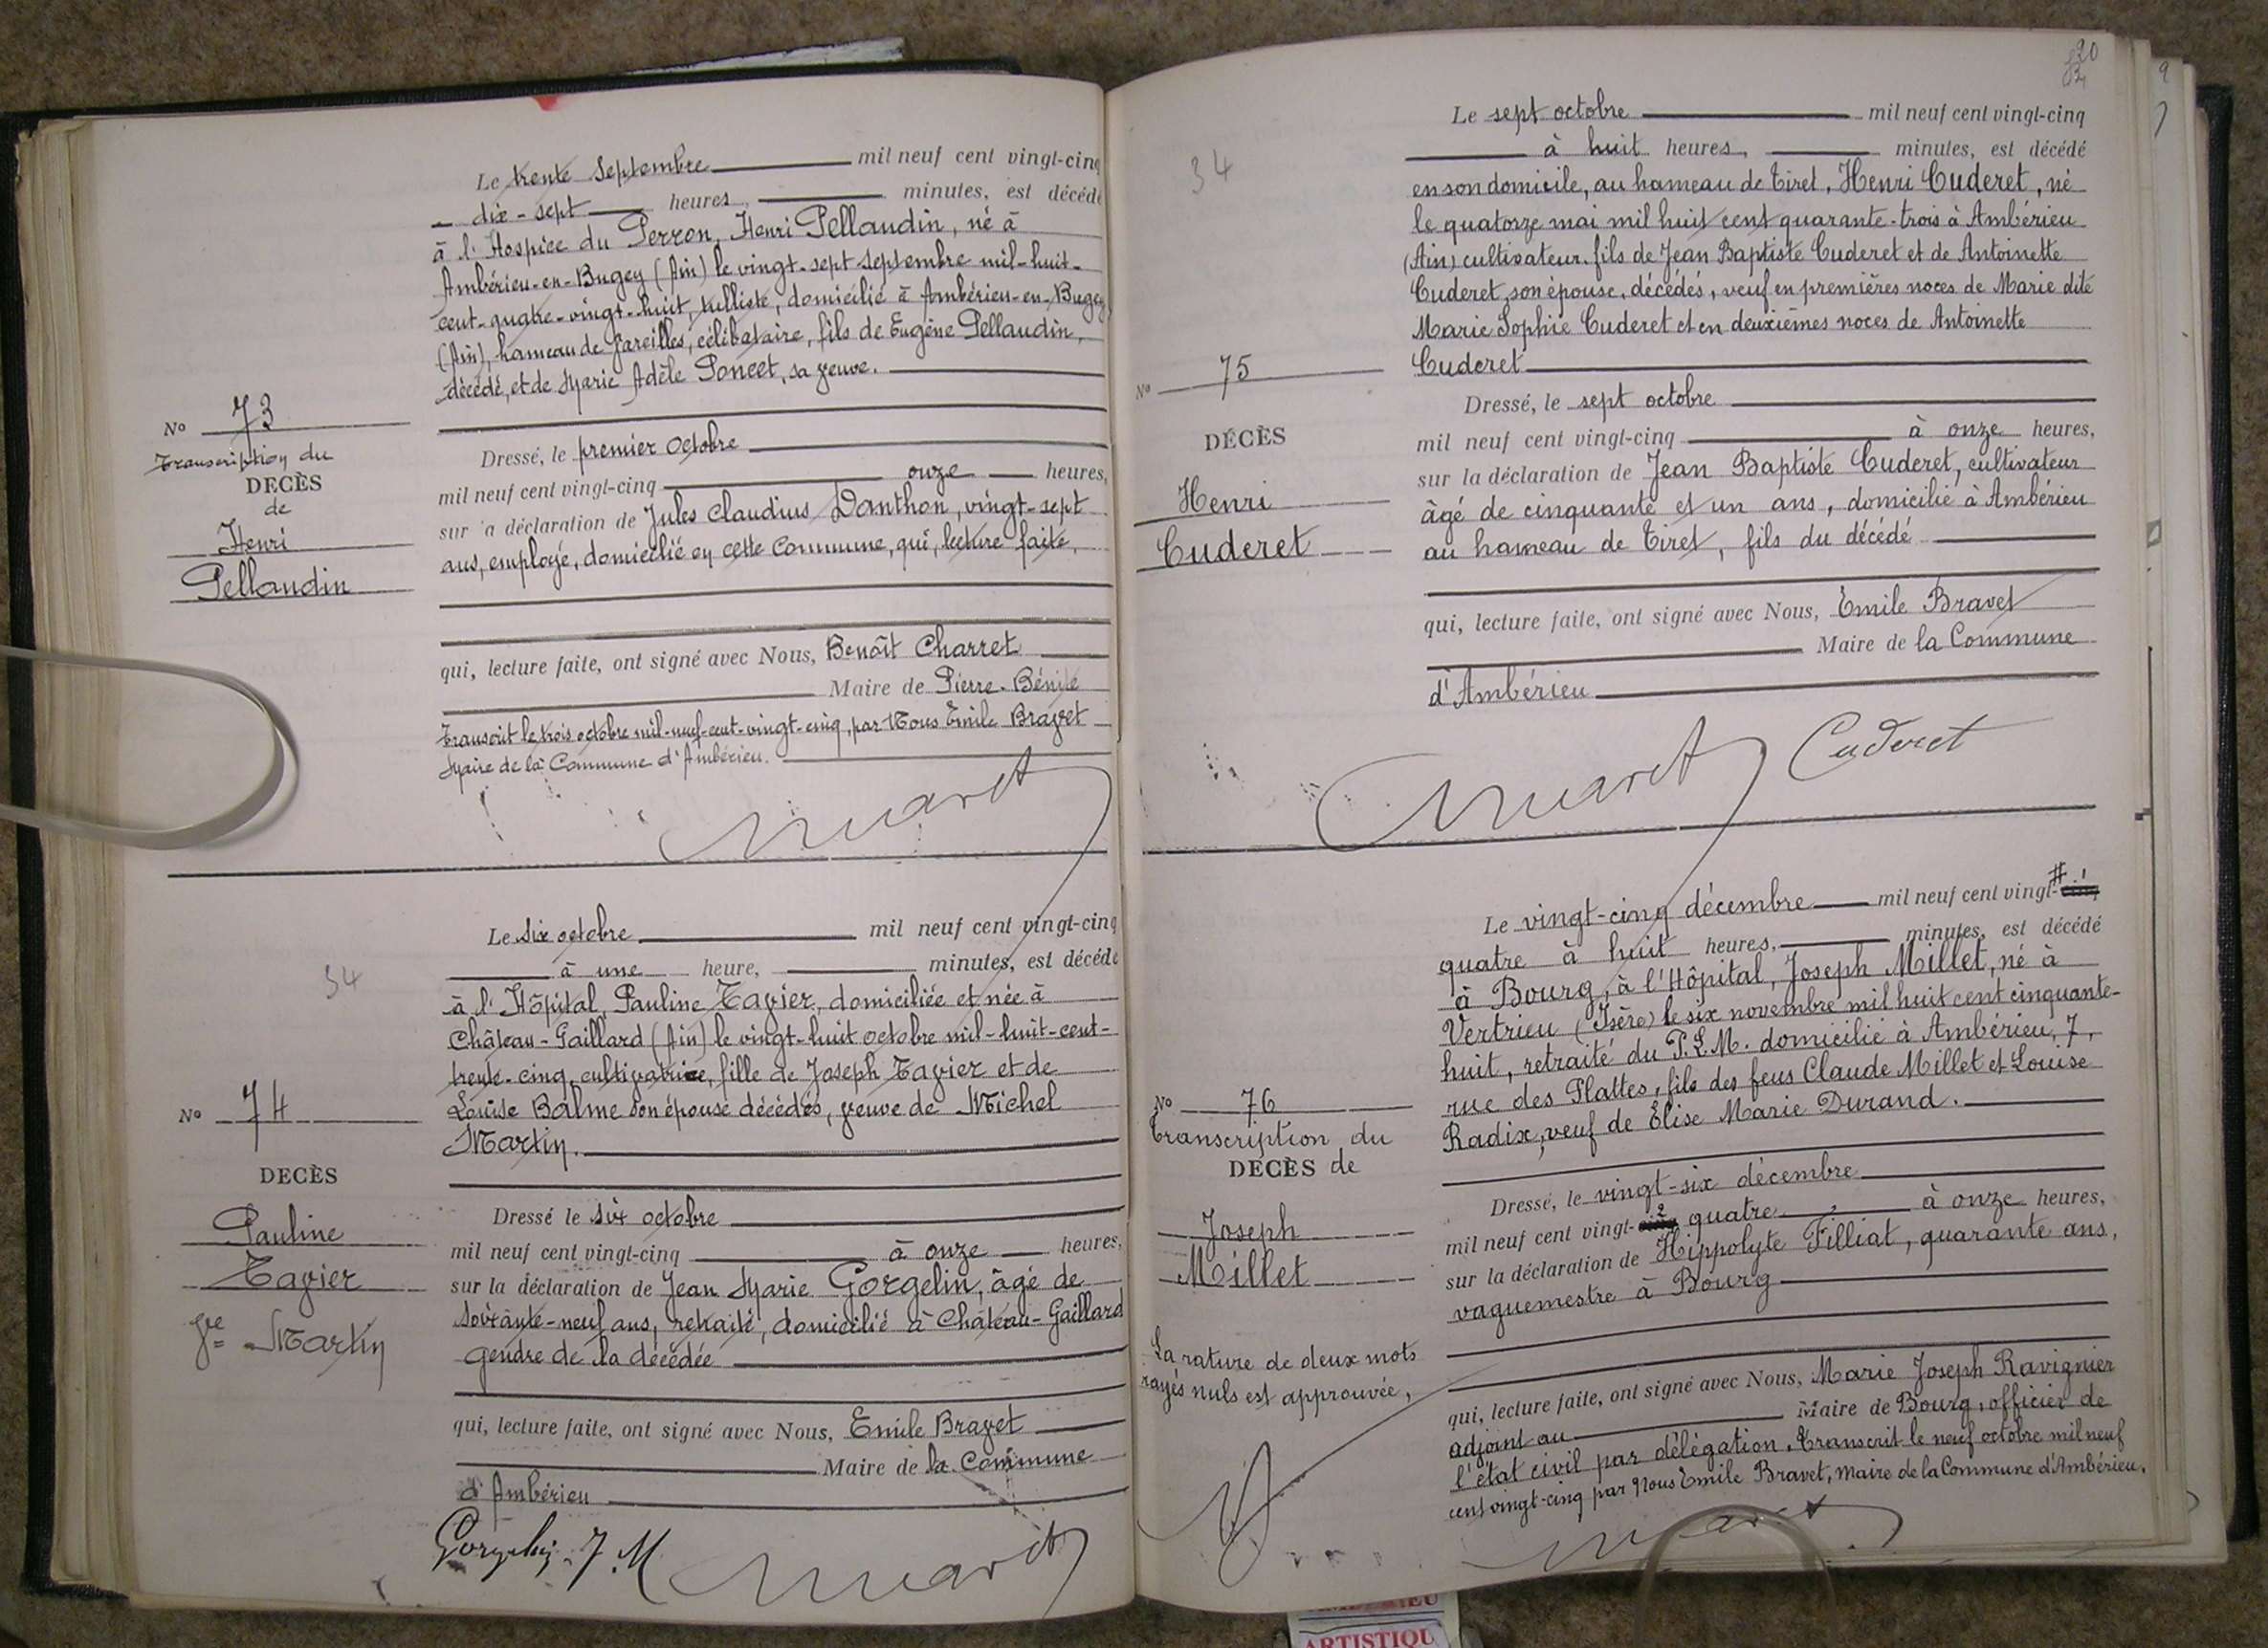 Le trente Septembre mil neuf cent vingt-cinq
dix-sept heures, minutes, est décédé
à l'Hospice du Perron, Henri Pellaudin, né à
Ambérieu-en-Bugey (Ain) le vingt-sept septembre mil-huit-
cent-quatre-vingt-huit, tulliste, domicilié à Ambérieu-en-Bugey
(Ain), hameau de Vareilles, célibataire, fils de Eugène Pellaudin,
décédé, et de Marie Adèle Poncet, sa veuve.
No 73
Transcription du
DECÈS
de
Henri
Pellaudin
Dressé, le premier octobre
mil neuf cent vingt-cinq onze heures,
sur a déclaration de Jules Claudius Danthon, vingt-sept
ans, employé, domicilié en cette Commune, qui, lecture faite,
qui, lecture faite, ont signé avec Nous, Benoît Charret
Maire de Pierre-Bénite
Transcrit le trois octobre mil-neuf-cent-vingt-cinq, par Nous Emile Bravet
Maire de la Commune d'Ambérieu.
Le six octobre mil neuf cent vingt-cinq
à une heure, minutes, est décédé
34
à l'Hôpital, Pauline Tavier, domiciliée et née à
Château-Gaillard (Ain) le vingt-huit octobre mil-huit-cent-
trente-cinq, cultivatrice, fille de Joseph Tavier et de
Louise Balme son épouse décédés, veuve de Michel
Martin.
No 74
DECÈS
Pauline
Tavier
Ve Martin
Dressé le six octobre
mil neuf cent vingt-cinq à onze heures,
sur la déclaration de Jean Marie Gorgelin, âgé de
soixante-neuf ans, retraité, domicilié à Château-Gaillard
gendre de la décédée
qui, lecture faite, ont signé avec Nous, Emile Bravet
Maire de la Commune
d'Ambérieu
Gorgelin J. M
20
34
Le sept octobre mil neuf cent vingt-cinq
à huit heures, minutes, est décédé
en son domicile, au hameau de Tiret, Henri Cuderet, né
le quatorze mai mil huit cent quarante-trois à Ambérieu
(Ain) cultivateur, fils de Jean Baptiste Cuderet et de Antoinette
Cuderet, son épouse, décédés, veuf en premières noces de Marie dite
Marie Sophie Cuderet et en deuxièmes noces de Antoinette
Cuderet
No 75
DÉCÈS
Henri
Cuderet
Dressé, le sept octobre
mil neuf cent vingt-cinq à onze heures,
sur la déclaration de Jean Baptiste Cuderet, cultivateur
âgé de cinquante et un ans, domicilié à Ambérieu
au hameau de Tiret, fils du décédé
qui, lecture faite, ont signé avec Nous, Emile Bravet
Maire de la Commune
d'Ambérieu
Cuderet
Le vingt-cinq décembre mil neuf cent vingt-cinq # 1
quatre à huit heures, minutes, est décédé
à Bourg, à l'Hôpital, Joseph Millet, né à
Vertrieu (Isère) le six novembre mil huit cent cinquante-
huit, retraité du P.L.M. domicilié à Ambérieu, 7,
rue des Plattes, fils des feus Claude Millet et Louise
Radix, veuf de Elise Marie Durand.
No 76
Transcription du
DECÈS de
Joseph
Millet
Dressé, le vingt-six décembre
mil neuf cent vingt-cinq 2 quatre à onze heures,
sur la déclaration de Hippolyte Filliat, quarante ans,
vaguemestre à Bourg
La rature de deux mots
rayés nuls est approuvée,
qui, lecture faite, ont signé avec Nous, Marie Joseph Ravignier
adjoint au Maire de Bourg, officier de
l'état civil par délégation. Transcrit le neuf octobre mil neuf
cent vingt-cinq par Nous Emile Bravet, Maire de la Commune d'Ambérieu.
ARTISTIQU